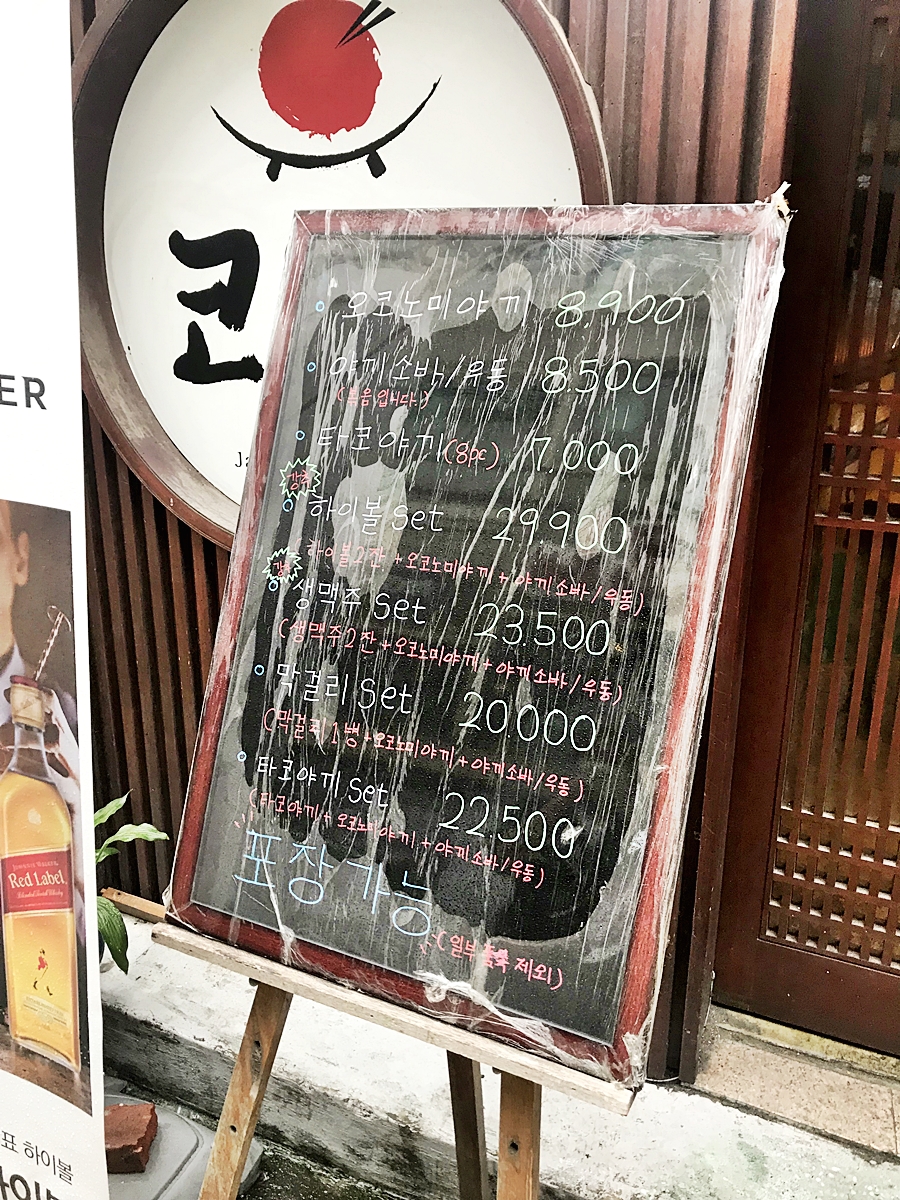 코
ER
Ja
오코노미야끼 8.900
야끼소바/우동 8.500
(볶음입니다.)
타코야끼(8pc) 7.000
강추
하이볼 Set 29.900
(하이볼2잔 + 오코노미야끼 + 야끼소바/우동)
강추
생맥주 Set 23.500
(생맥주2잔 + 오코노미야끼 + 야끼소바/우동)
막걸리 Set 20.000
(막걸리1병 + 오코노미야끼 + 야끼소바/우동)
타코야끼 Set 22.500
(타코야끼 + 오코노미야끼 + 야끼소바/우동)
포장가능
(일부 제외)
JOHNNIE WALKER
Red Label
Blended Scotch Whisky
표 하이볼